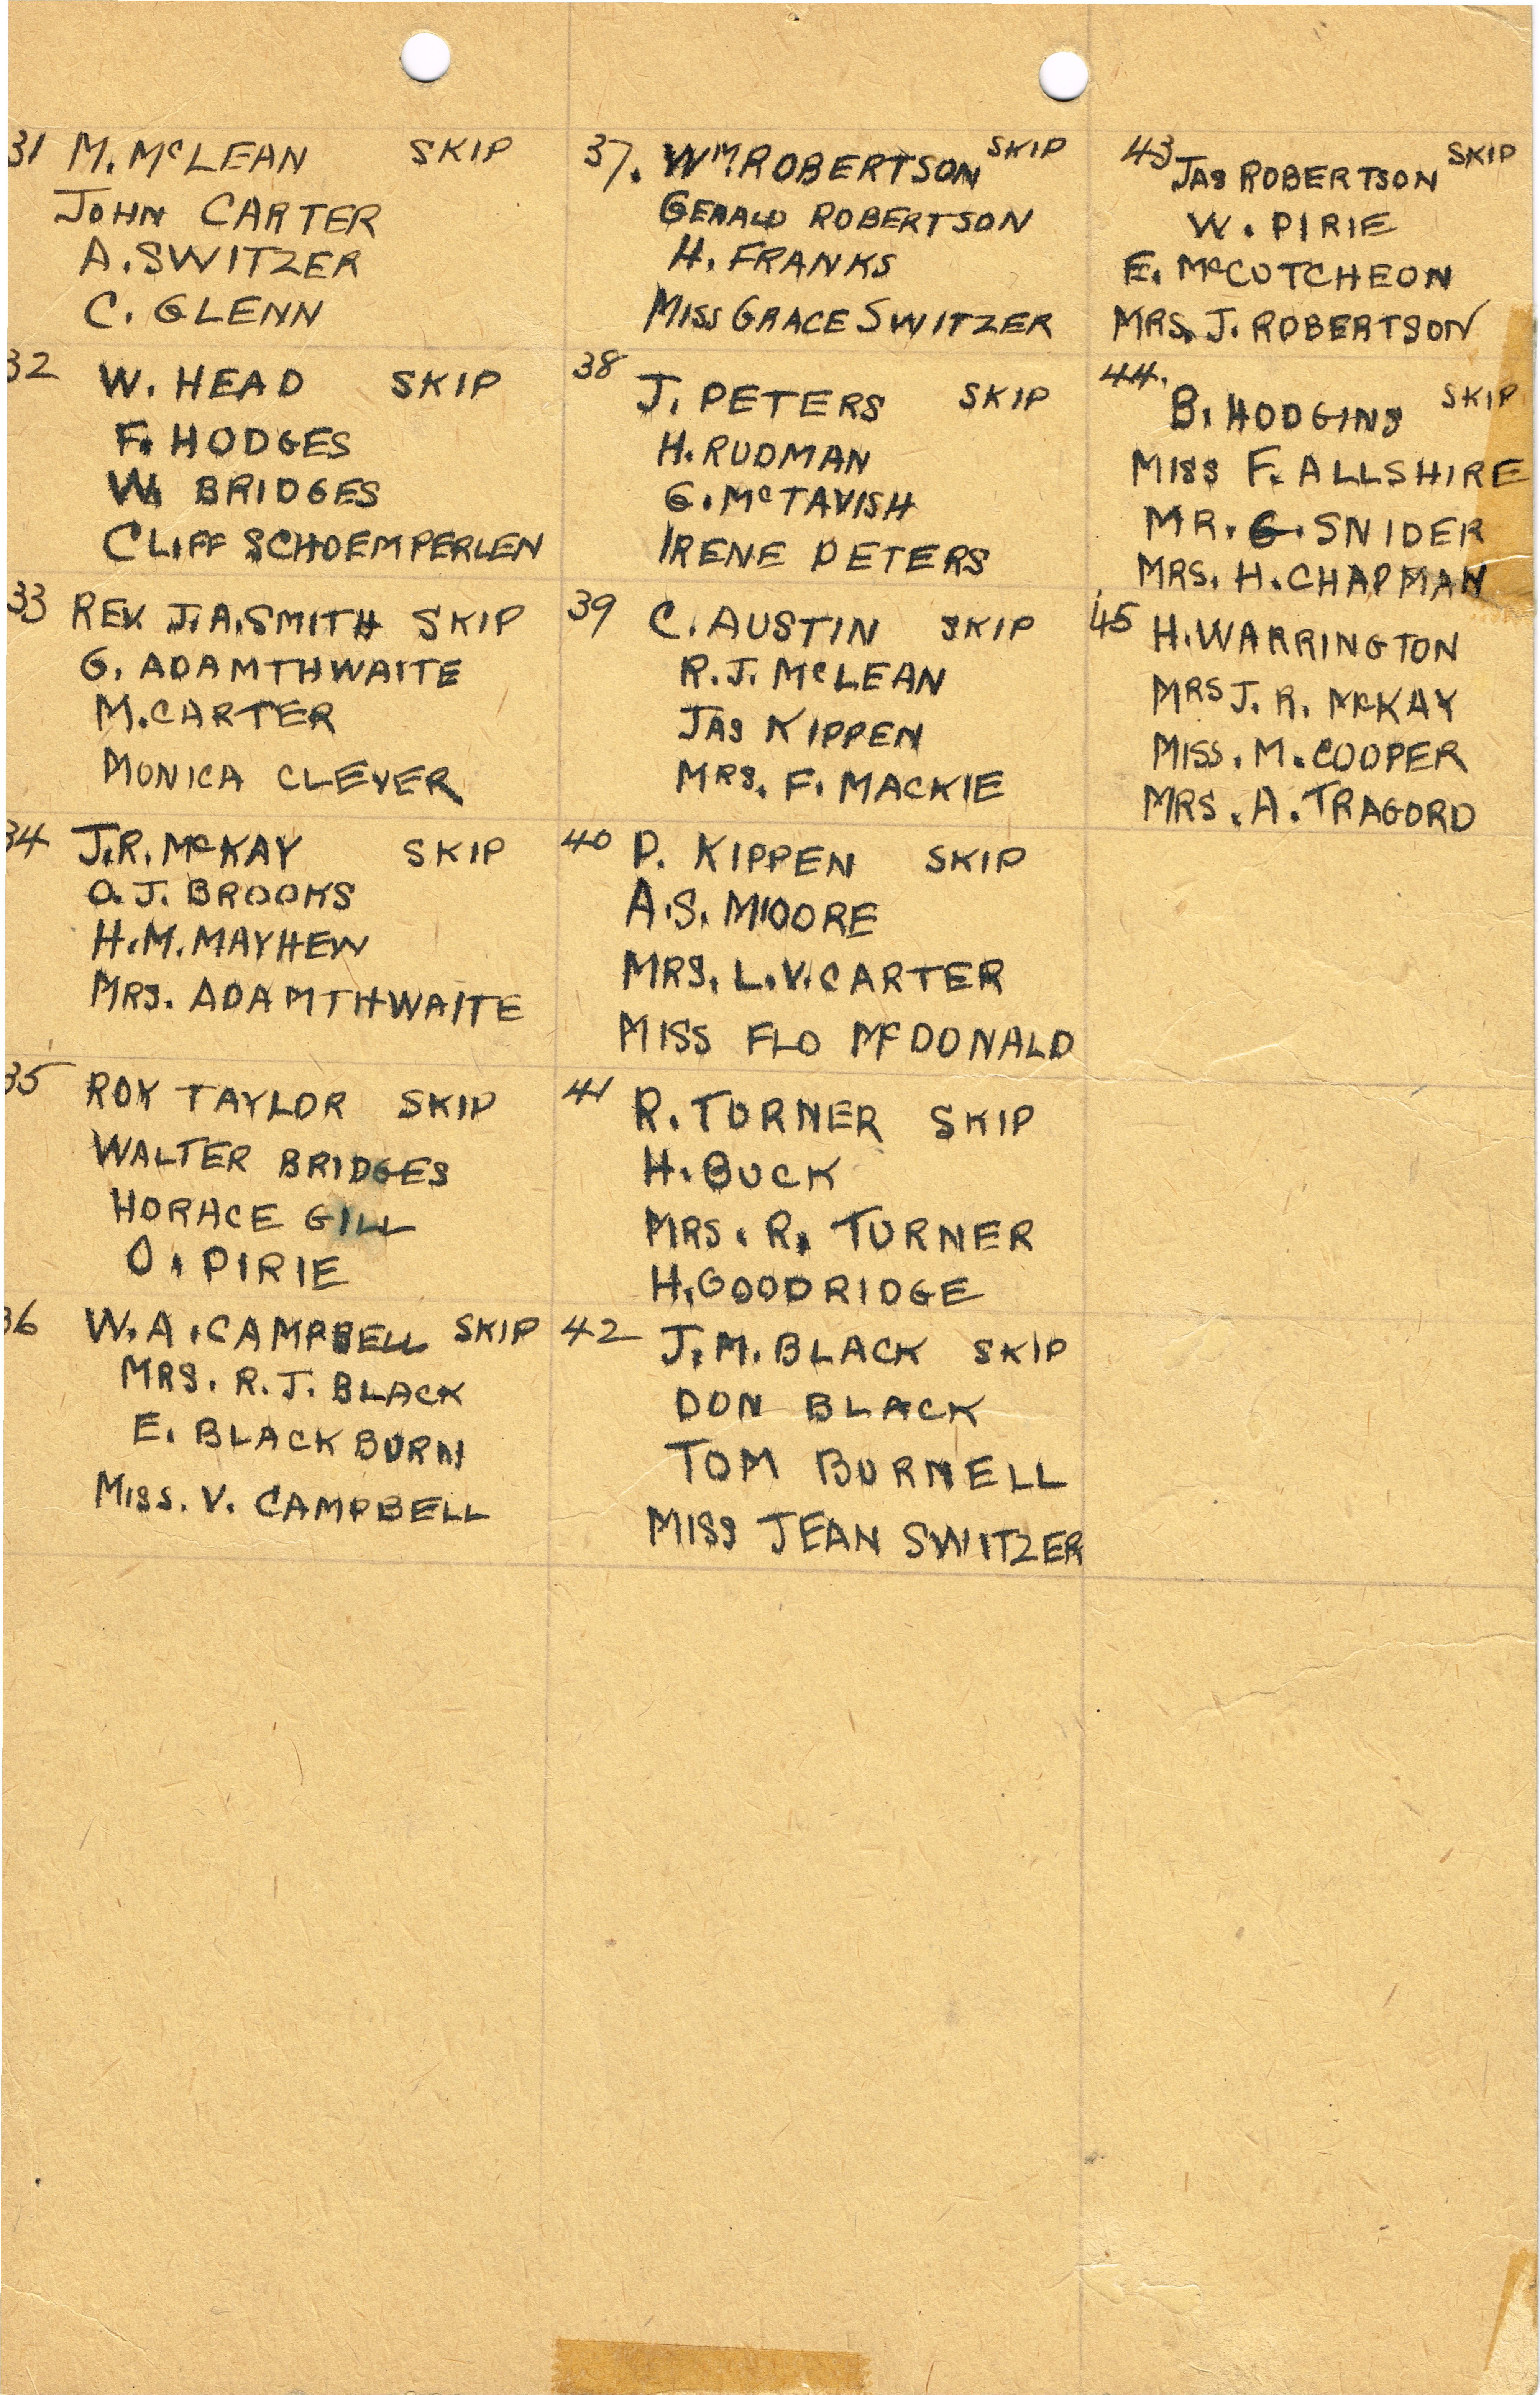 31 M. McLEAN SKIP
JOHN CARTER
A. SWITZER
C. GLENN
32 W. HEAD SKIP
F. HODGES
W. BRIDGES
CLIFF SCHOEMPERLEN
33 REV J.A. SMITH SKIP
G. ADAMTHWAITE
M. CARTER
MONICA CLEVER
34 J.R. McKAY SKIP
O. J. BROOKS
H.M. MAYHEW
MRS. ADAMTHWAITE
35 ROY TAYLOR SKIP
WALTER BRIDGES
HORACE GILL
O. PIRIE
36 W.A. CAMPBELL SKIP
MRS. R. J. BLACK
E. BLACKBURN
MISS. V. CAMPBELL
37. WM ROBERTSON SKIP
GERALD ROBERTSON
H. FRANKS
MISS GRACE SWITZER
38 J. PETERS SKIP
H. RUDMAN
G. McTAVISH
IRENE PETERS
39 C. AUSTIN SKIP
R. J. McLEAN
JAS KIPPEN
MRS. F. MACKIE
40 D. KIPPEN SKIP
A.S. MOORE
MRS. L.V. CARTER
MISS FLO McDONALD
41 R. TURNER SKIP
H. BUCK
MRS. R. TURNER
H. GOODRIDGE
42 J.M. BLACK SKIP
DON BLACK
TOM BURNELL
MISS JEAN SWITZER
43 JAS ROBERTSON SKIP
W. PIRIE
E. McCUTCHEON
MRS. J. ROBERTSON
44. B. HODGINS SKIP
MISS F. ALLSHIRE
MR. G. SNIDER
MRS. H. CHAPMAN
45 H. WARRINGTON
MRS J. R. McKAY
MISS. M. COOPER
MRS. A. TRAGORD